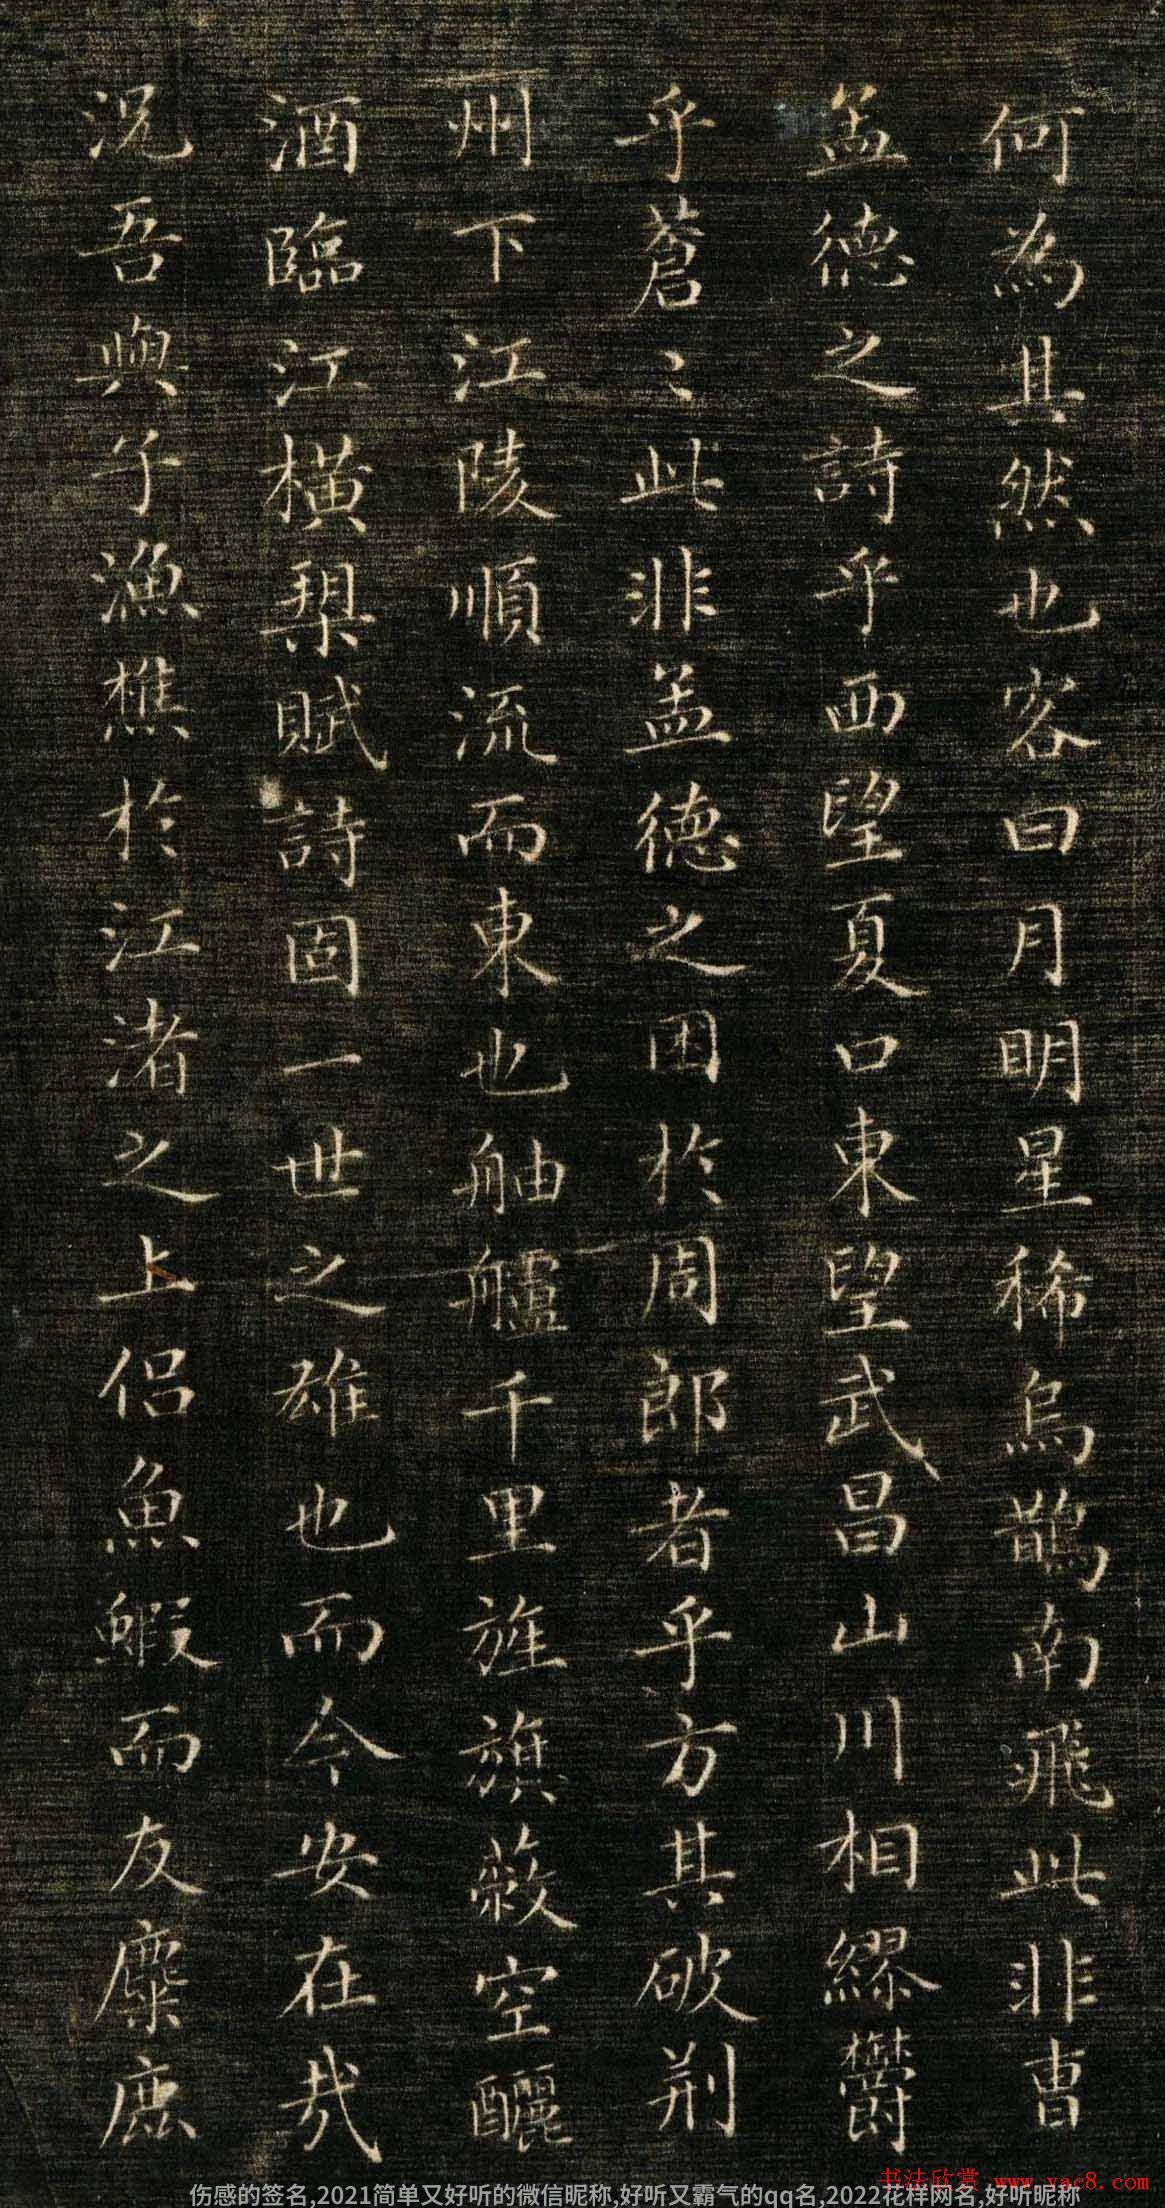 何為其然也客曰月明星稀烏鵲南飛此非曹
孟德之詩乎西望夏口東望武昌山川相繆欝
乎蒼〻此非孟德之困於周郎者乎方其破荆
州下江陵順流而東也舳艫千里旌旗蔽空釃
酒臨江橫槊賦詩固一世之雄也而今安在哉
況吾與子漁樵於江渚之上侣魚鰕而友麋鹿
书法欣赏 www.yac8.com
伤感的签名,2021简单又好听的微信昵称,好听又霸气的qq名,2022花样网名,好听昵称